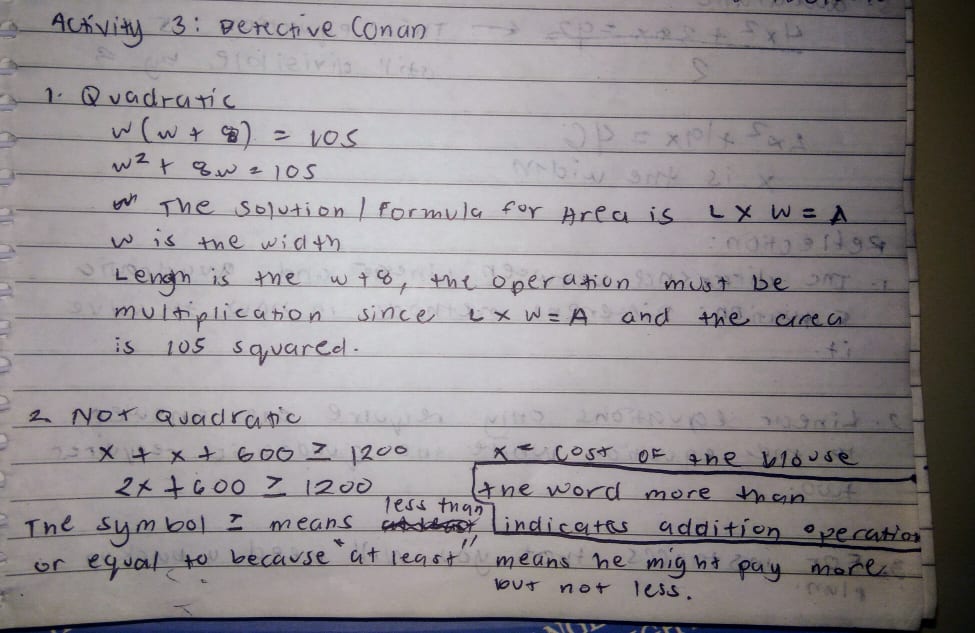 Activity 3: Detective Conan
1. Quadratic
w(w + 8) = 105
w² + 8w = 105
The solution / formula for Area is L x W = A
w is the width
Lengh is the w +8, the operation must be
multiplication since L x W = A and the area
is 105 squared.
2 Not Quadratic
x + x + 600 ≥ 1200 x = cost of the blouse
2x + 600 ≥ 1200 the word more than
indicates addition operation
The symbol ≥ means less than
or equal to because "at least" means he might pay more
but not less.